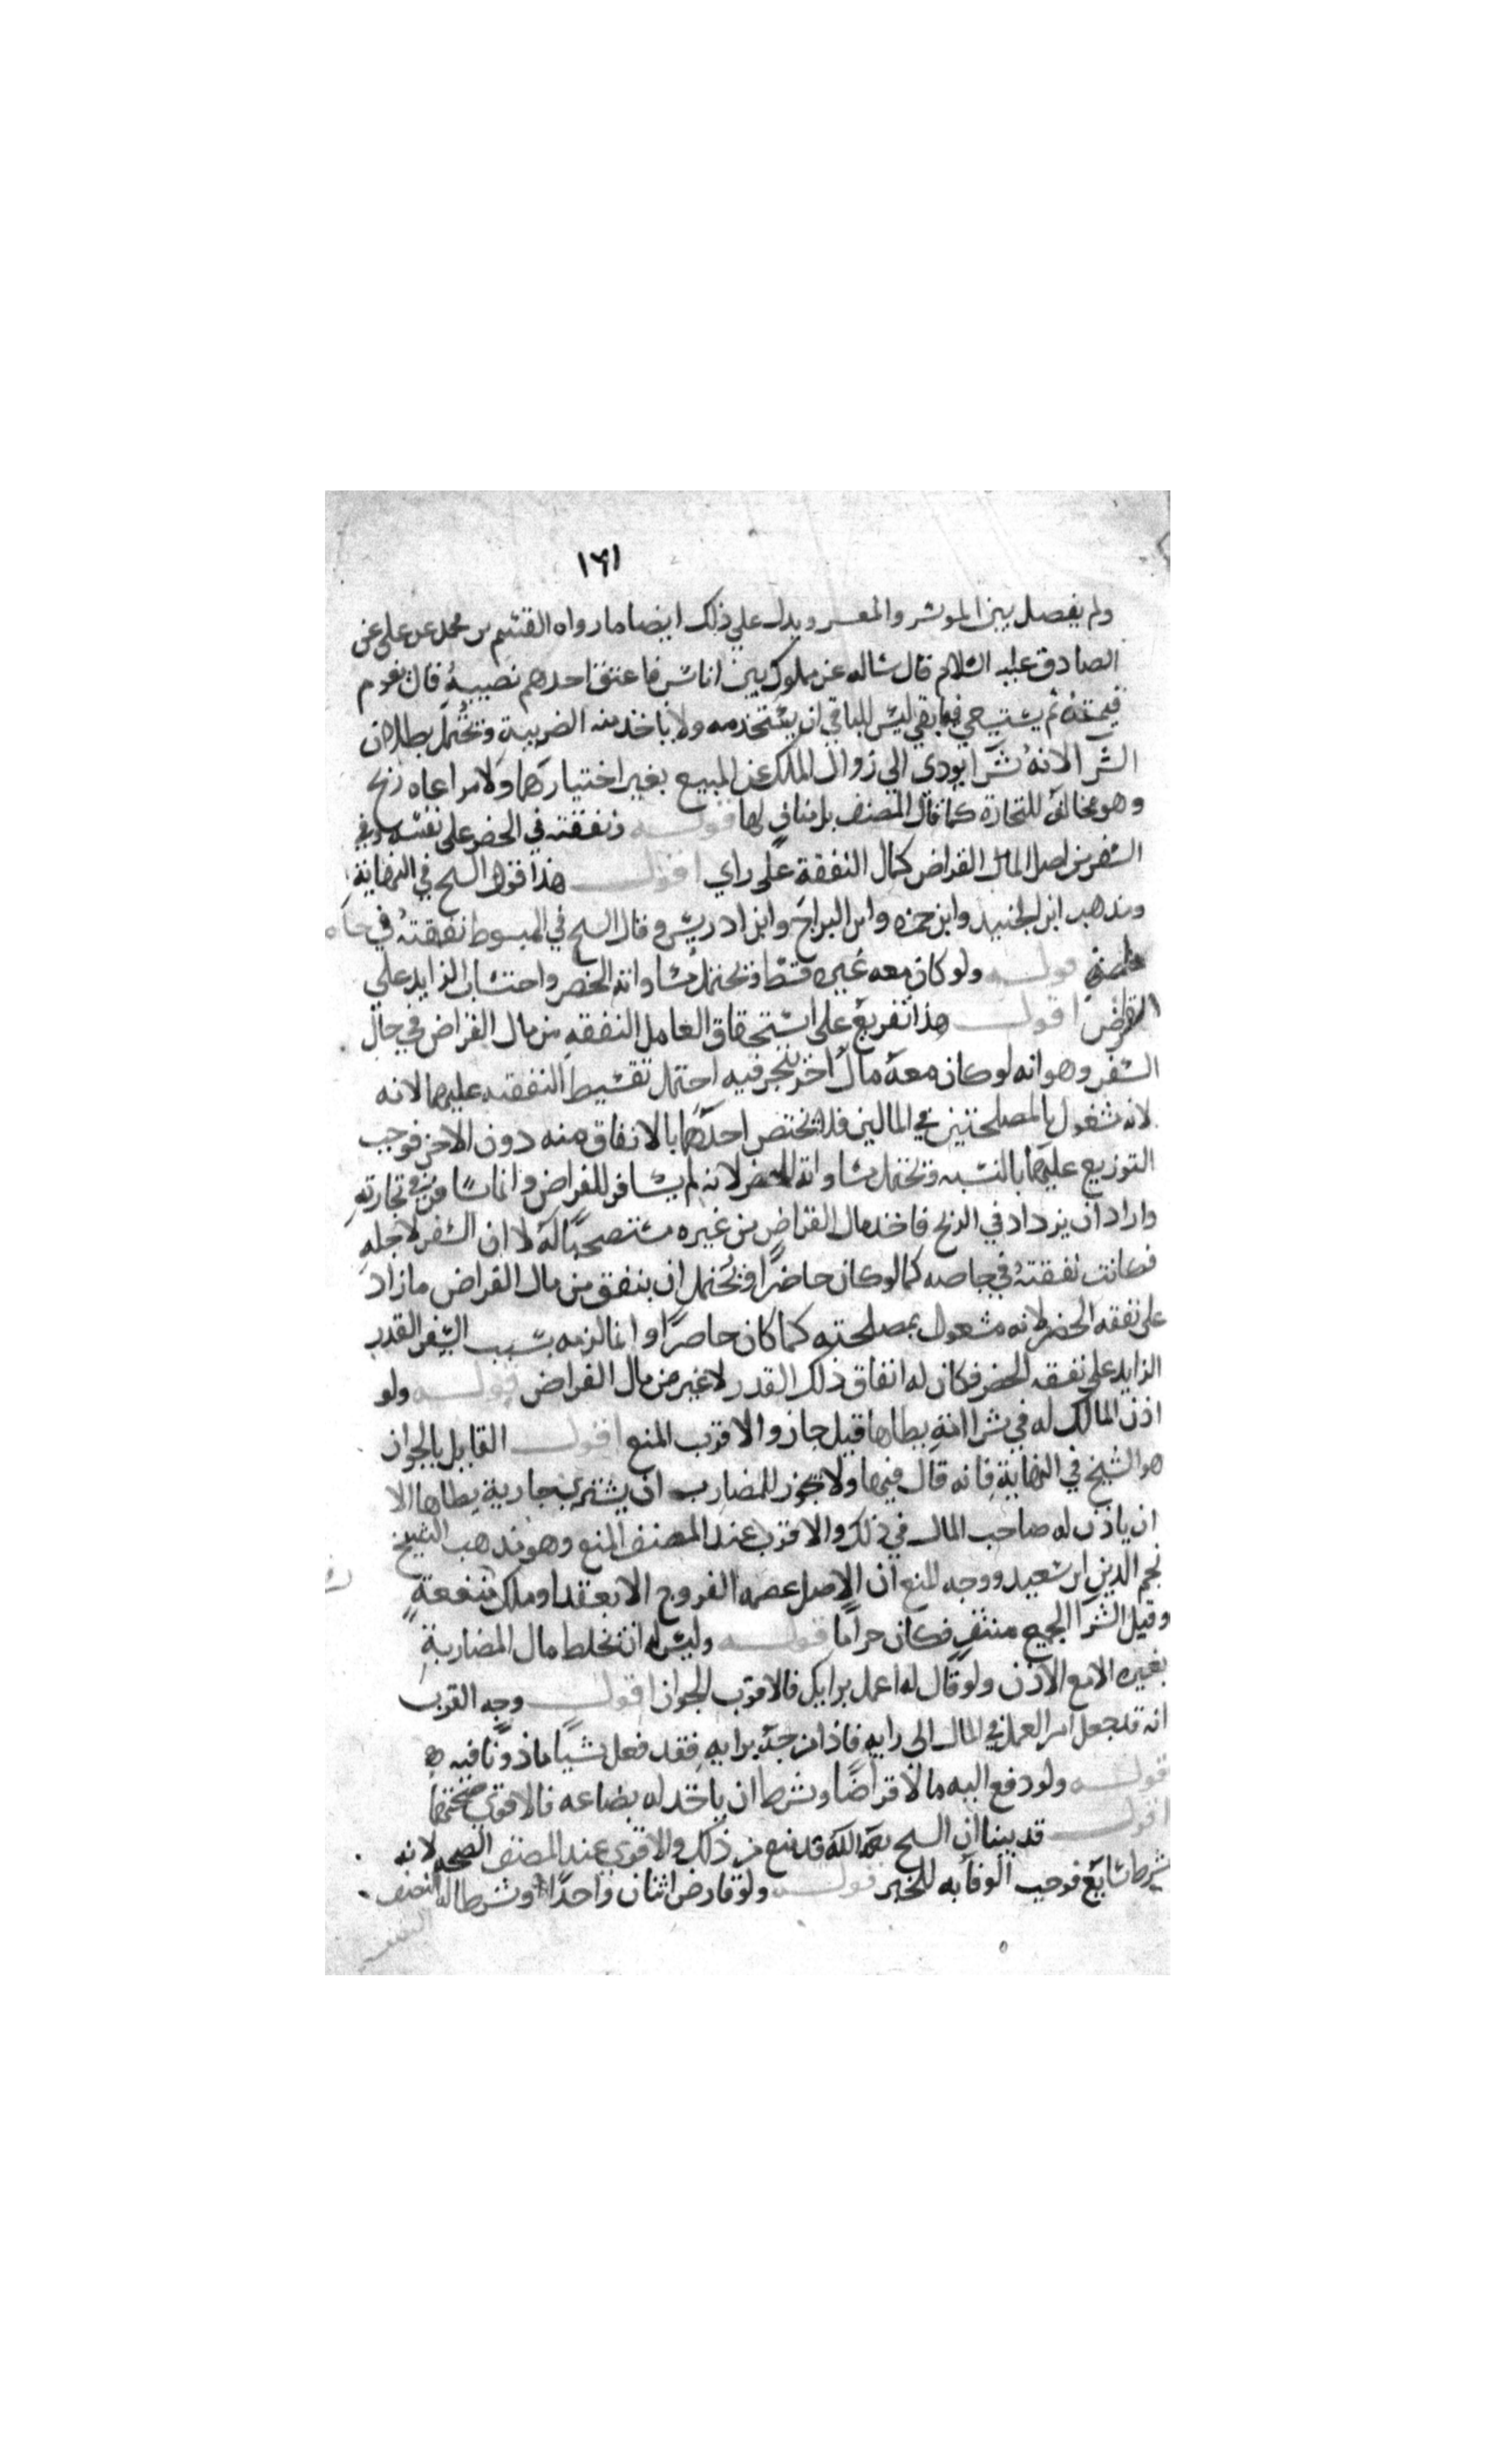 ١٦١
ولم يفصل بين الموسر والمعسر ويدل علي ذلك ايضا ما رواه القسم بن محمد عن علي عن
الصادق عليه السلام قال ساله عن مملوك بين اناس فاعتق احدهم نصيبه قال يقوم
قيمته ثم يستسعي فيما بقي ليس للباقي ان يستخدمه ولا ياخذ منه الضريبة ويحتمل بطلان
الشرا لانه شرا يودي الي زوال الملك عن المبيع بغير اختيارهما ولا مراعاه ربح
وهو مخالف للتجارة كما قال المصنف بل مناف لها قوله ونفقته في الحضر علي نفسه وفي
السفر من اصل المال القراض كمال النفقة علي راي اقول هذا قول الشيخ في النهاية
ومذهب ابن الجنيد وابن حمزه وابن البراج وابن ادريس وقال الشيخ في المبسوط نفقته في
خاصته قوله ولو كان معه غيره قسط ويحتمل مساواته الحضر واحتساب الزايد علي
القراض اقول هذا تفريع علي استحقاق العامل النفقه من مال القراض في حال
السفر وهو انه لو كان معه مال آخر يتجر فيه احتمل تقسيط النفقه عليهما لانه
لانه مشغول بالمصلحتين في المالين فلا يختص احدهما بالانفاق منه دون الاخر فوجب
التوزيع عليهما بالنسبه ويحتمل مساواته للحضر لانه لم يسافر للقراض وانما سافر في تجارته
واراد ان يزداد في الربح فاخذ مال القراض من غيره مستصحبا له لا ان السفر لاجله
فكانت نفقته في خاصه كما لو كان حاضرا ويحتمل ان ينفق من مال القراض ما زاد
علي نفقه الحضر لانه مشغول بمصلحته كما كان حاضرا وانما لزمه بسبب السفر القدر
الزايد علي نفقه الحضر فكان له انفاق ذلك القدر لا غير من مال القراض قوله ولو
اذن المالك له في شرا امة يطاها قيل جاز والاقرب المنع اقول القايل بالجواز
هو الشيخ في النهاية فانه قال فيها ولا يجوز للمضارب ان يشتري جارية يطاها الا
ان ياذن له صاحب المال في ذلك والاقرب عند المصنف المنع وهو مذهب الشيخ
نجم الدين ابن سعيد ووجه المنع ان الاصل عصمه الفروج الا بعقد او ملك منفعة
وقبل الشرا الجميع منتف فكان حراما قوله وليس له ان يخلط مال المضاربة
بغيره الا مع الاذن ولو قال له اعمل برايك فالاقرب الجواز اقول وجه القرب
انه قد جعل امر العمل في المال الي رايه فاذا مزجه برايه فقد فعل شيا ماذونا فيه
قوله ولو دفع اليه مالا قراضا وشرط ان ياخذ له بضاعه فالاقوي صحتهما
اقول قد بينا ان الشيخ رحمه الله قد منع من ذلك والاقوي عند المصنف الصحه لانه
شرط سايغ فوجب الوفا به للخبر قوله ولو قارض اثنان واحدا وشرطا له النصف
النصف